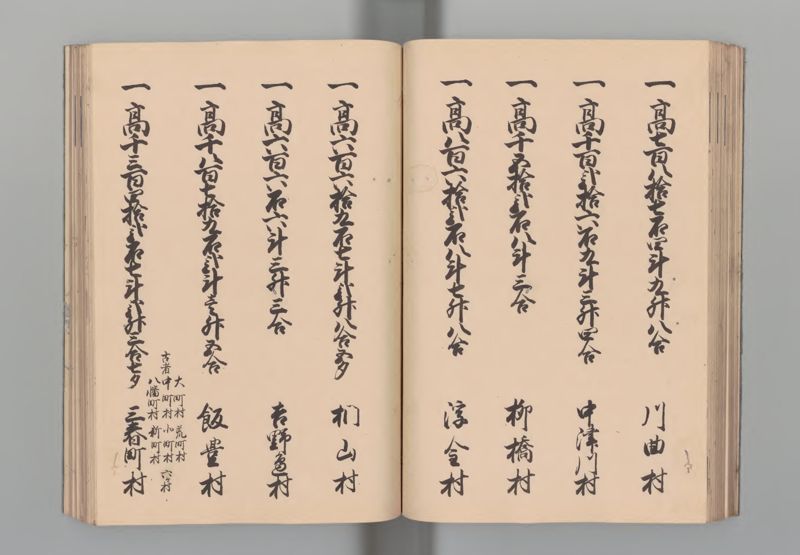 一 高七百八拾七石四斗九升八合 川曲村
一 高千百弐拾六石九斗三升四合 中津川村
一 高千五拾弐石八斗三合 柳橋村
一 高八百六拾弐石八斗七升八合 村
一 高六百六拾五石七斗弐升八合五夕 椚山村
一 高六百六石六斗三升三合 吉野辺村
一 高千八百七拾九石弐斗壱升五合 飯豊村
一 高千三百四拾弐石七斗弐升三合七夕 三春町村
大町村 荒町村
古者中町村 北町村 六ヶ村
八幡町村 新町村